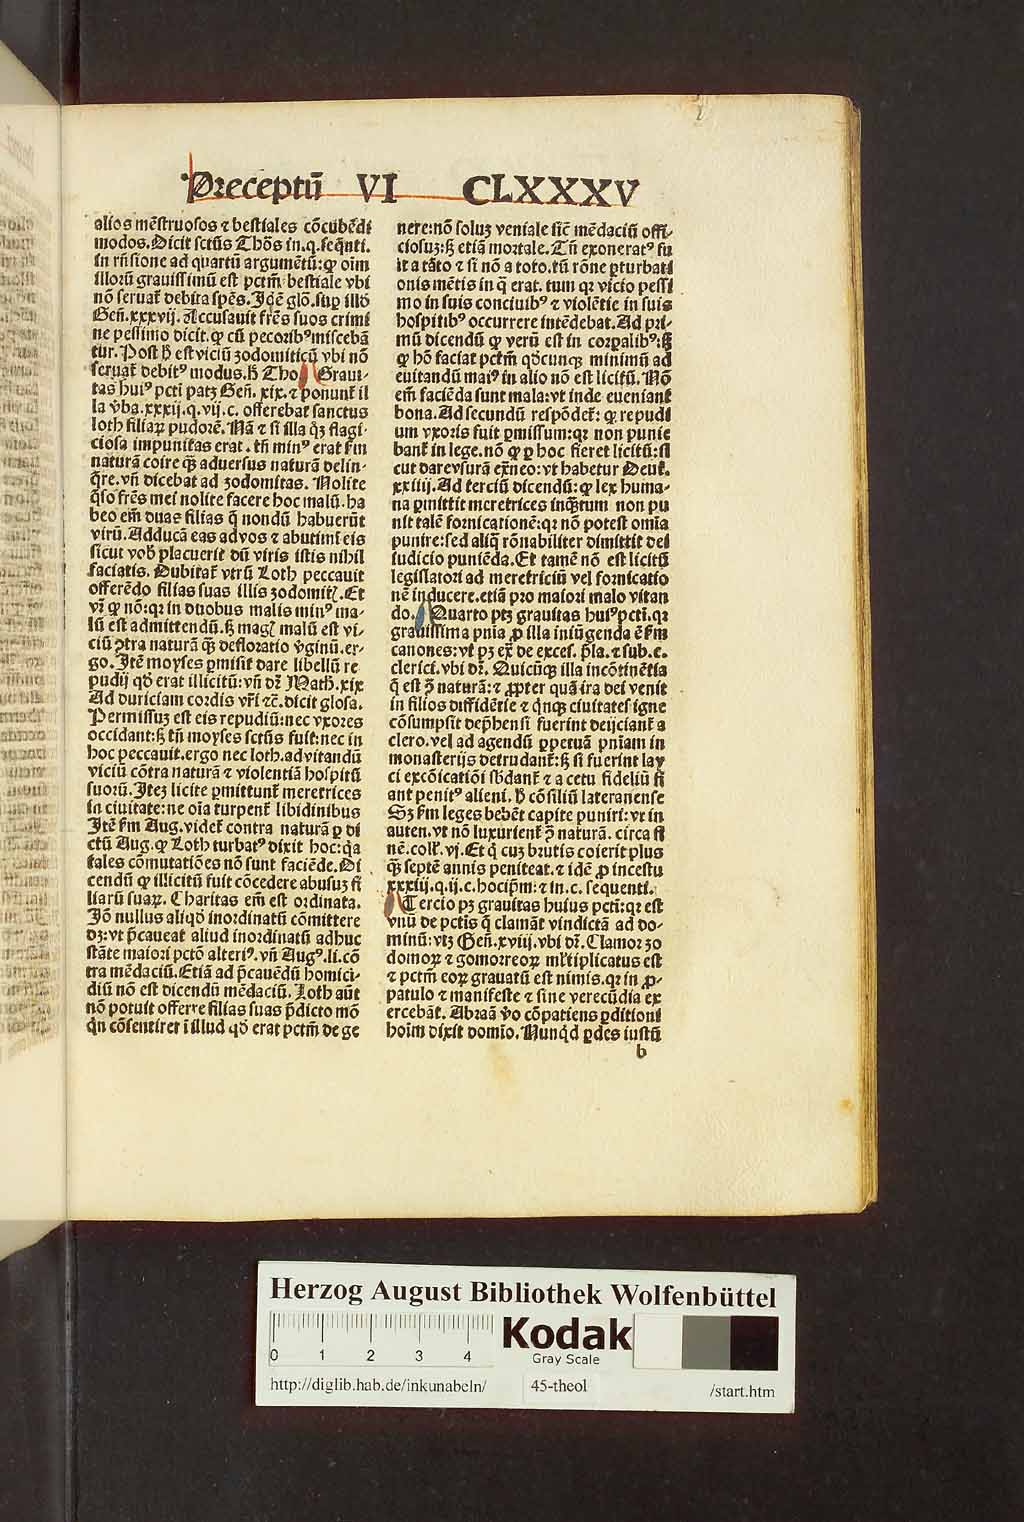 Preceptū VI CLXXXV
alios mēstruosos ⁊ bestiales cōcubēdi
modos. Dicit sctūs Thōs in. q. seq̄nti.
in rn̄sione ad quartū argumētū: ꝙ oīm
illorū grauissimū est pctm̄ bestiale vbi
nō seruat᷑ debita spēs. Idē glō. suꝑ illō
Geñ. xxxvij. Accusauit frēs suos crimi
ne pessimo dicit. ꝙ cū pecoribꝰ miscebā
tur. Post h̄ est viciū zodomiticū vbi nō
seruat᷑ debitꝰ modus. h̄ Tho Graui-
tas huiꝰ pcti patꝫ Geñ. xix. ⁊ ponunt᷑ il
la v̄ba. xxxij. q. vij. c. offerebat sanctus
loth filiaꝝ pudorē. Nā ⁊ si illa q̄ꝫ flagi-
ciosa impunitas erat. tn̄ minꝰ erat ẜm
naturā coire q̄ꝫ aduersus naturā delin-
q̄re. vn̄ dicebat ad zodomitas. Nolite
q̄so frēs mei nolite facere hoc malū. ha
beo em̄ duas filias q̄ nondū habuerūt
virū. Adducā eas ad vos ⁊ abutimī eis
sicut vob̄ placuerit dū viris istis nihil
faciatis. Dubitat᷑ vtrū Loth peccauit
offerēdo filias suas illis zodomitꝭ. Et
vr̄ ꝙ nō: qꝛ in duobus malis minꝰ ma-
lū est admittendū. ẜꝫ magꝭ malū est vi-
ciū ꝯtra naturā q̄ꝫ defloratio v̄ginū. er-
go. Itē moyses ꝑmisit dare libellū re
pudij qđ erat illicitū: vn̄ dr̄ Math. xix
Ad duriciam cordis vr̄i ⁊c̄. dicit glosa.
Permissuꝫ est eis repudiū: nec vxores
occidant: ẜꝫ tn̄ moyses sctūs fuit: nec in
hoc peccauit. ergo nec loth. ad vitandū
viciū cōtra naturā ⁊ violentiā hospitū
suorū. Iteꝫ licite ꝑmittunt᷑ meretrices
in ciuitate: ne oīa turpent᷑ libidinibus
Itē ẜm Aug. videt᷑ contra naturā ꝑ di
ctū Aug. ꝙ Loth turbatꝰ dixit hoc: q̄a
tales cōmutatiōes nō sunt faciēde. Di
cendū ꝙ illicitū fuit cōcedere abusuꝫ fi
liarū suaꝝ. Charitas em̄ est ordinata.
Iō nullus aliqđ inordinatū cōmittere
dꝫ: vt p̄caueat aliud inordinatū adhuc
stāte maiori pctō alteriꝰ. vn̄ Augꝰ. li. cō
tra mēdaciū. Etiā ad p̄cauēdū homici-
diū nō est dicendū mēdaciū. Loth aūt
nō potuit offerre filias suas p̄dicto mō
q̄n cōsentiret ī illud qđ erat pctm̄ de ge
nere: nō soluꝫ veniale sic̄ mēdaciū offi-
ciosuꝫ: ẜꝫ etiā mortale. Tn̄ exonerat᷑ fu
it a tāto ⁊ si nō a toto. tū rōne ꝑturbati
onis mētis in q̄ erat. tum qꝛ vicio pessi
mo in suis conciuibꝰ ⁊ violētie in suis
hospitibꝰ occurrere intēdebat. Ad pri-
mū dicendū ꝙ verū est in corꝑalibꝰ: ẜꝫ
ꝙ hō faciat pctm̄ qđcunqꝫ minimū ad
euitandū maiꝰ in alio nō est licitū. Nō
em̄ faciēda sunt mala: vt inde eueniant
bona. Ad secundū respōdet᷑: ꝙ repudi
um vxoris fuit ꝑmissum: qꝛ non punie
bant᷑ in lege. nō ꝙ ꝑ hoc fieret licitū: si
cut dare vsurā extn̄eo: vt habetur Deut᷑.
xxiiij. Ad terciū dicendū: ꝙ lex huma-
na ꝑmittit meretrices inq̄ꝫtum non pu
nit talē fornicationē: qꝛ nō potest omīa
punire: sed aliq̄ rōnabiliter dimittit dei
iudicio puniēda. Et tamē nō est licitū
legislatori ad meretriciū vel fornicatio
nē inducere. etiā pro maiori malo vitan
do. Quarto ptꝫ grauitas huiꝰ pcti: qꝛ
grauissima pn̄ia ꝓ illa iniūgenda ē ẜm
canones: vt pꝫ ex̄ de exces. p̄la. ⁊ sub. c.
clerici. vbi dr̄. Quicūqꝫ illa incōtinētia
q̄ est ꝯ̄ naturā: ⁊ ꝓpter quā ira dei venit
in filios diffidētie ⁊ q̄nqꝫ ciuitates igne
cōsumpsit dep̄hensi fuerint deijciant᷑ a
clero. vel ad agendū ꝑpetuā pn̄iam in
monasterijs detrudant᷑: ẜꝫ si fuerint lay
ci excōicatiōi sb̄dant᷑ ⁊ a cetu fideliū fi
ant penitꝰ alieni. h̄ cōsiliū lateranense
Sꝫ ẜm leges debēt capite puniri: vt in
auten. vt nō luxurient᷑ ꝯ̄ naturā. circa fi
nē. coll᷑. vj. Et q̄ cuꝫ brutis coierit plus
q̄ꝫ septē annis peniteat. ⁊ idē ꝓ incestu
xxxiij. q. ij. c. hoc ip̄m: ⁊ in. c. sequenti.
Tercio pꝫ grauitas huius pcti: qꝛ est
vnū de pctīs q̄ clamāt vindictā ad do-
minū: vtꝫ Geñ. xviij. vbi dr̄. Clamor zo
domoꝝ ⁊ gomorreoꝝ ml̄tiplicatus est
⁊ pctm̄ eoꝝ grauatū est nimis. qꝛ in ꝓ-
patulo ⁊ manifeste ⁊ sine verecūdia ex
ercebāt. Abraā v̄o cōpatiens ꝑditioni
hoīm dixit domīo. Nunqđ ꝑdes iustū
b
Herzog August Bibliothek Wolfenbüttel
0 1 2 3 4
Kodak
Gray Scale
http://diglib.hab.de/inkunabeln/ 45-theol /start.htm